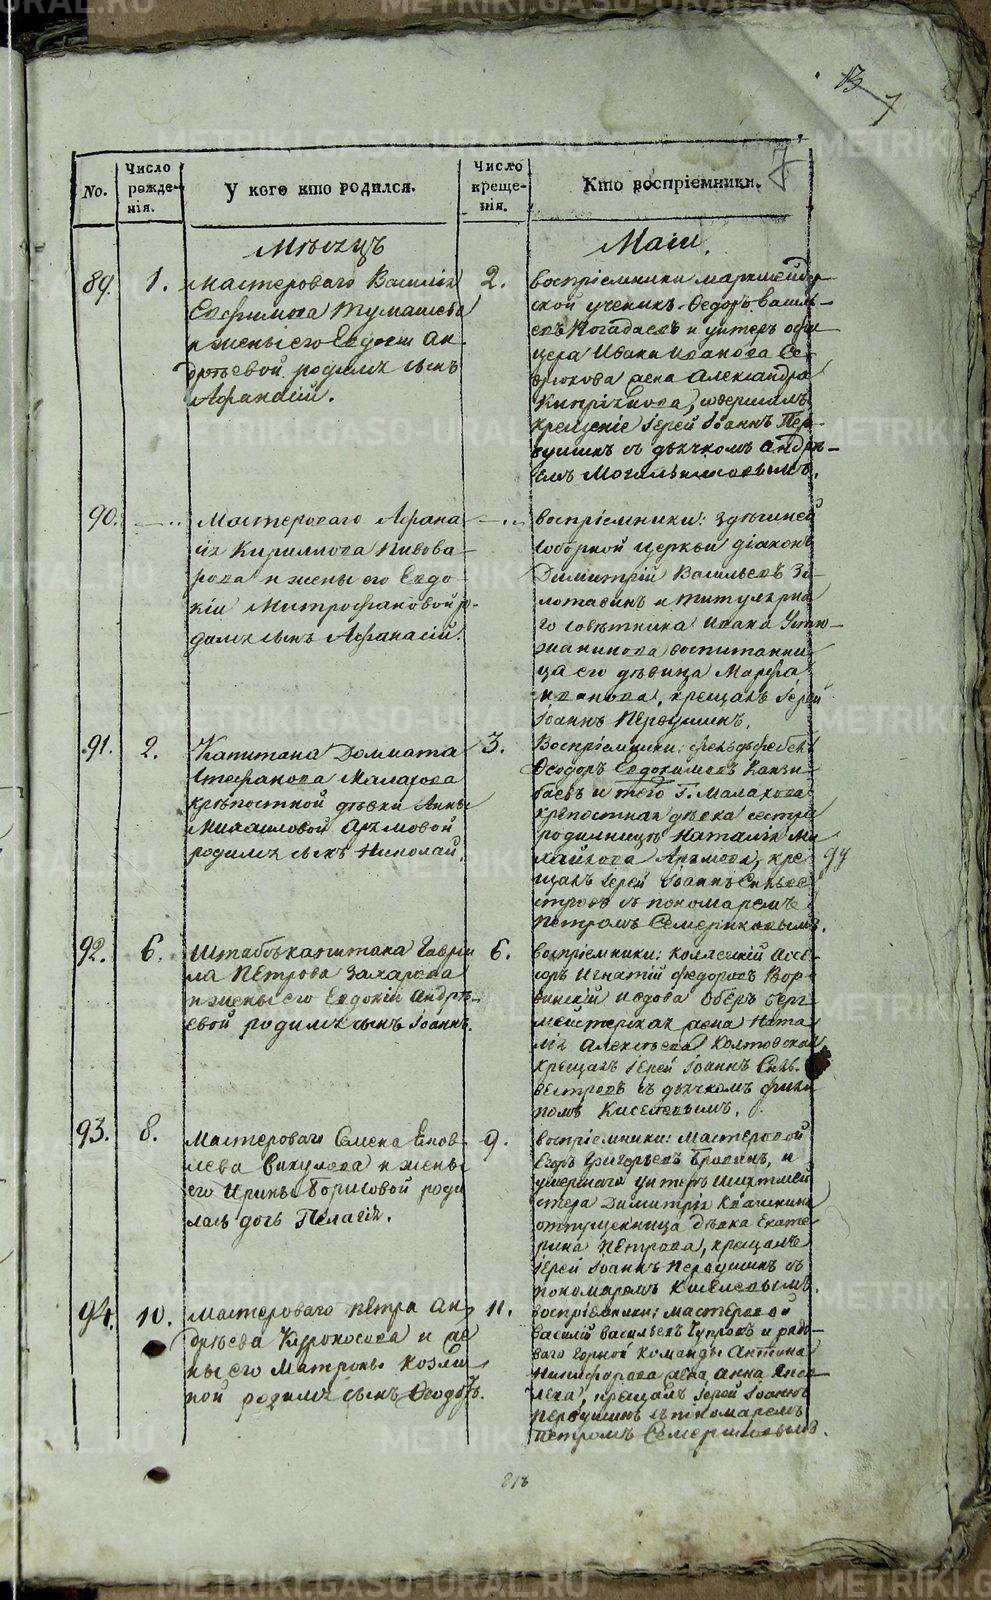 13
7
7
No.
Число рожде-нія.
У кого кто родился.
Число креще-нія.
Кто воспріемники.
Мѣсяцъ
Маіи.
89.
1.
Мастероваго Василія
Евфимова Тумашева
и жены его Евдокіи Ан-
дрѣевой родился сынъ
Афанасій.
2.
Воспріемники маркшейдер-
ской ученикъ Ѳедоръ Василь-
евъ Погадаевъ и унтеръ офи-
цера Ивана Иванова Се-
жена Александра
совершалъ
крещеніе Іерей Іоаннъ Пер-
вушинъ съ дьячкомъ Андрѣ-
емъ Могильниковымъ.
90.
—..
Мастероваго Афана-
сія Кириллова Пивова-
рова и жены его Евдо-
кіи Митрофановой ро-
дился сынъ Афанасій.
—..
Воспріемники: здѣшней
соборной церкви діаконъ
Димитрій Васильевъ Зо-
лотавинъ и титулярна-
го совѣтника Ивана Устю-
жанинова воспитанни-
ца его дѣвица Марфа
Иванова, крещалъ Іерей
Іоаннъ Первушинъ.
91.
2.
Капитана Доммата
Стефанова Малахова
крѣпостной дѣвки Анны
Михаиловой Арамовой
родился сынъ Николай.
3.
Воспріемники: фельдфебель
Ѳеодоръ Евдокимовъ
и того Г. Малахова
крепостная дѣвка сестра
родильницы Наталія Ми-
хайлова Арамова, кре-
щалъ Іерей Іоаннъ Сильве-
стровъ съ пономаремъ
Петромъ Семериковымъ.
94
92.
6.
Штабсъ капитана Гаври-
ла Петрова Захарова
и жены его Евдокіи Андрѣ-
евой родился сынъ Іоаннъ.
6.
Воспріемники: коллежскій Ассе-
соръ Игнатій Федоровъ Вор-
винскій и вдова Оберъ берг-
мейстерская жена Ната-
лія Алексѣева Колтовская
крещалъ Іерей Іоаннъ Сильве-
стровъ съ дьячкомъ Филип-
помъ Киселевымъ.
93.
8.
Мастероваго Семена Іаков-
лева Викулова и жены
его Ирины Борисовой роди-
лась дочь Пелагія.
9.
Воспріемники: Мастеровой
Егоръ Григорьевъ и
умершаго унтеръ шихтмей-
стера Димитрія
отпущенница дѣвка Екате-
рина Петрова, крещалъ
Іерей Іоаннъ Первушинъ съ
пономаремъ Киселевымъ.
94.
10.
Мастероваго Петра Ан-
дрѣева Курносова и же-
ны его Матроны Козми-
ной родился сынъ Ѳеодотъ.
11.
Воспріемники: Мастеровой
Василій Васильевъ Чупровъ и рядо-
ваго горной команды Антона
Никифорова жена Анна Яков-
лева, крещалъ Іерей Іоаннъ
Первушинъ съ пономаремъ
Петромъ Семериковымъ.
818
METRIKI.GASO-URAL.RU